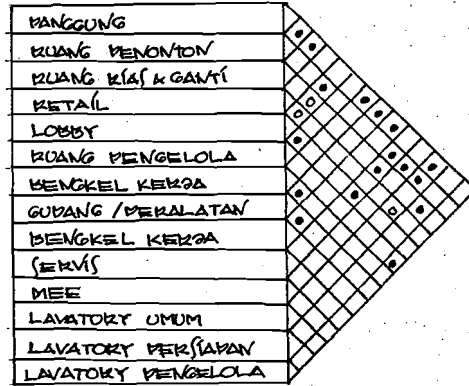 PANGGUNG
RUANG PENONTON
RUANG RIAS & GANTI
RETAIL
LOBBY
RUANG PENGELOLA
BENGKEL KERJA
GUDANG / PERALATAN
BENGKEL KERJA
SERVIS
MEE
LAVATORY UMUM
LAVATORY PERSIAPAN
LAVATORY PENGELOLA